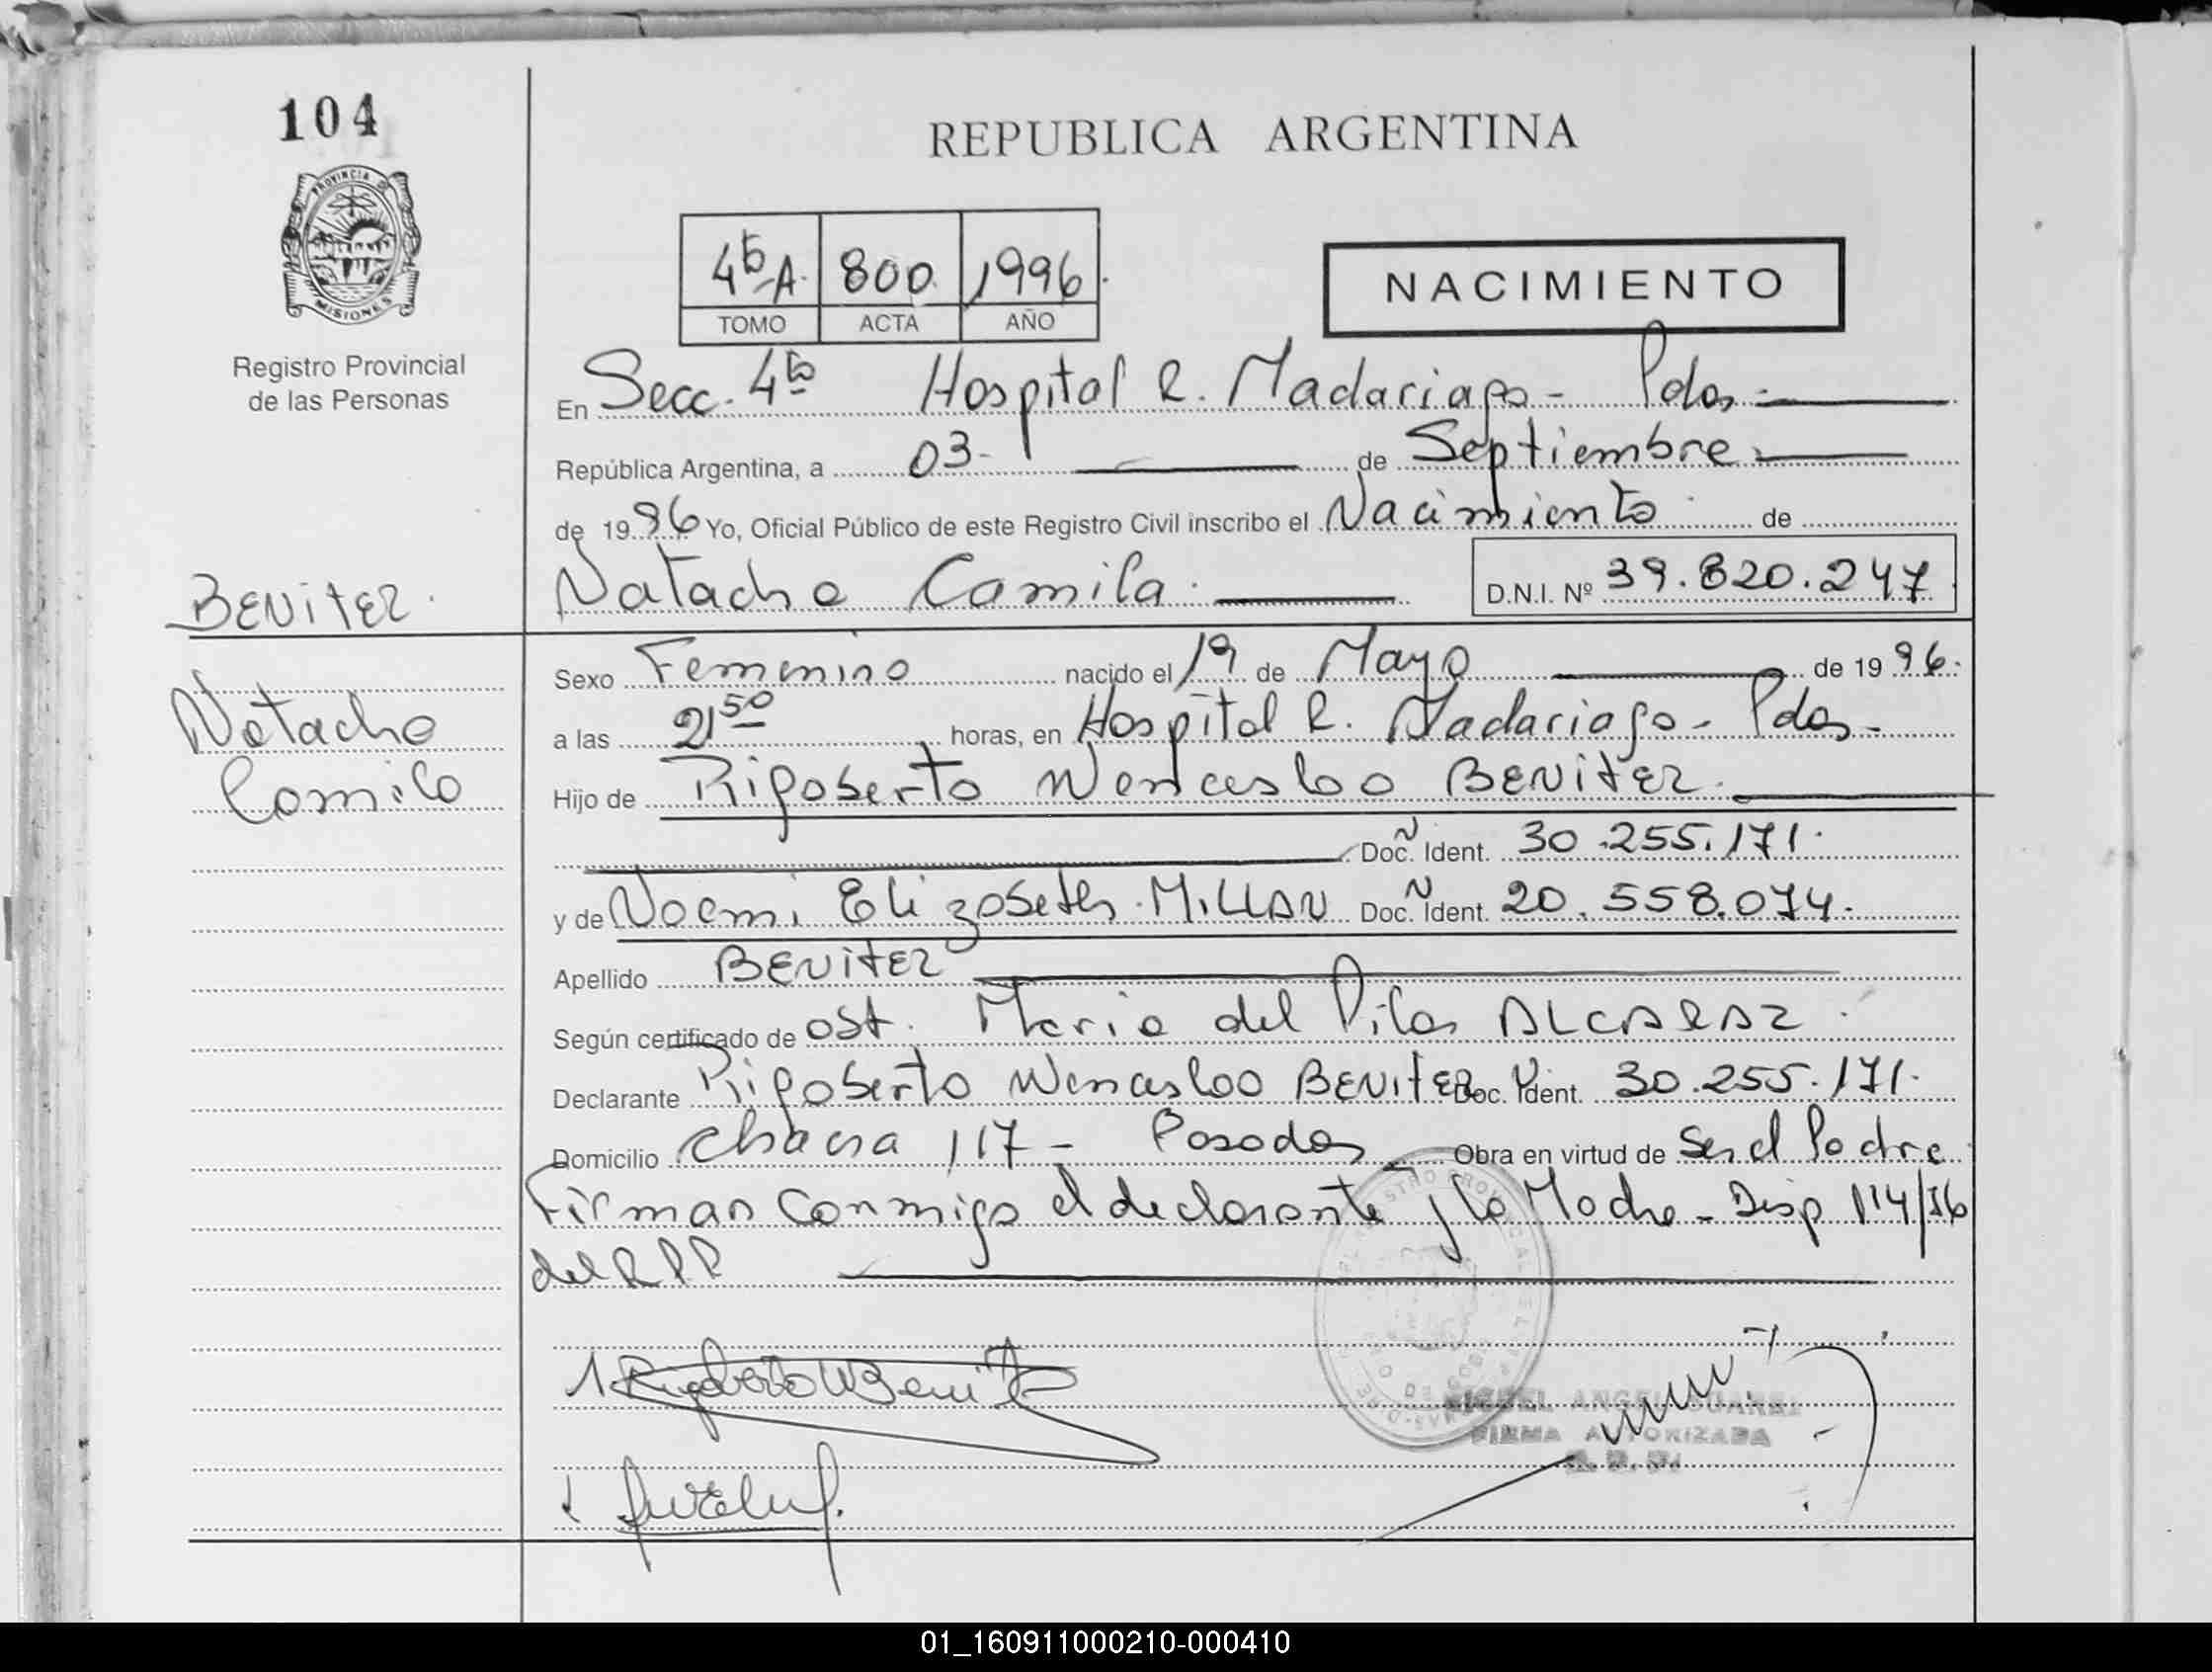 104
REPUBLICA ARGENTINA
PROVINCIA DE
MISIONES
Registro Provincial
de las Personas
4ta A. 800. 1996.
TOMO ACTA AÑO
NACIMIENTO
En Secc. 4ta Hospital R. Madariaga - Pdas.
República Argentina, a 03 - de Septiembre
de 1996 Yo, Oficial Público de este Registro Civil inscribo el Nacimiento de
BENITEZ. Natacha Camila. D.N.I. Nº 39.820.247
Sexo Femenino nacido el 19 de Mayo de 1996.
Natacha a las 21 50 horas, en Hospital R. Madariaga - Pdas -
Camila Hijo de Rigoberto Wenceslao BENITEZ.
Doc. Ident. 30.255.171.
y de Noemi Elizabeth MILLAN Doc. Ident. 20.558.074.
Apellido BENITEZ
Según certificado de Ost. Maria del Pilar ALCARAZ.
Declarante Rigoberto Wenceslao BENITEZ Doc. Ident. 30.255.171.
Domicilio Chacra 117 - Posadas Obra en virtud de Ser el Padre
Firman conmigo el declarante y la Madre - Disp 114/96
del R P P
Rigoberto W Benitez
MIGUEL ANGEL SUAREZ
FIRMA AUTORIZADA
01_160911000210-000410